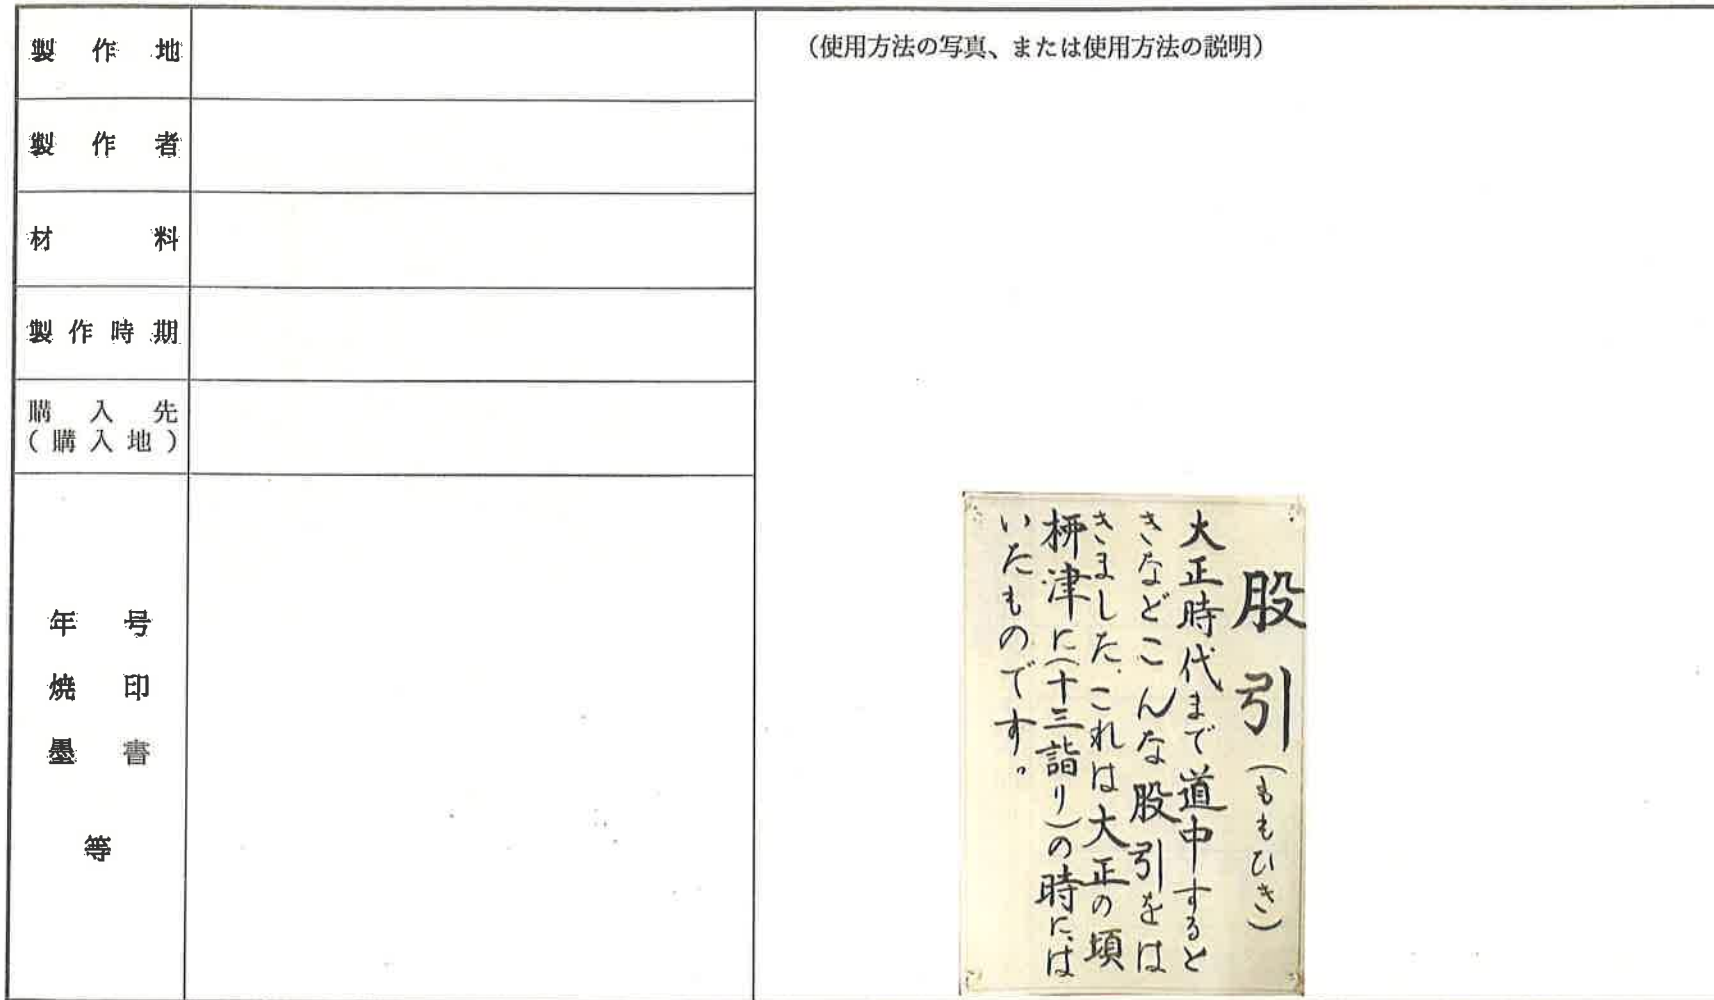 製作地
製作者
材料
製作時期
購入先
(購入地)
年号
焼印
墨書
等
(使用方法の写真、または使用方法の説明)
股引(ももひき)
大正時代まで道中すると
きなどこんな股引をは
きました.これは大正の頃
柳津に(十三詣り)の時には
いたものです。